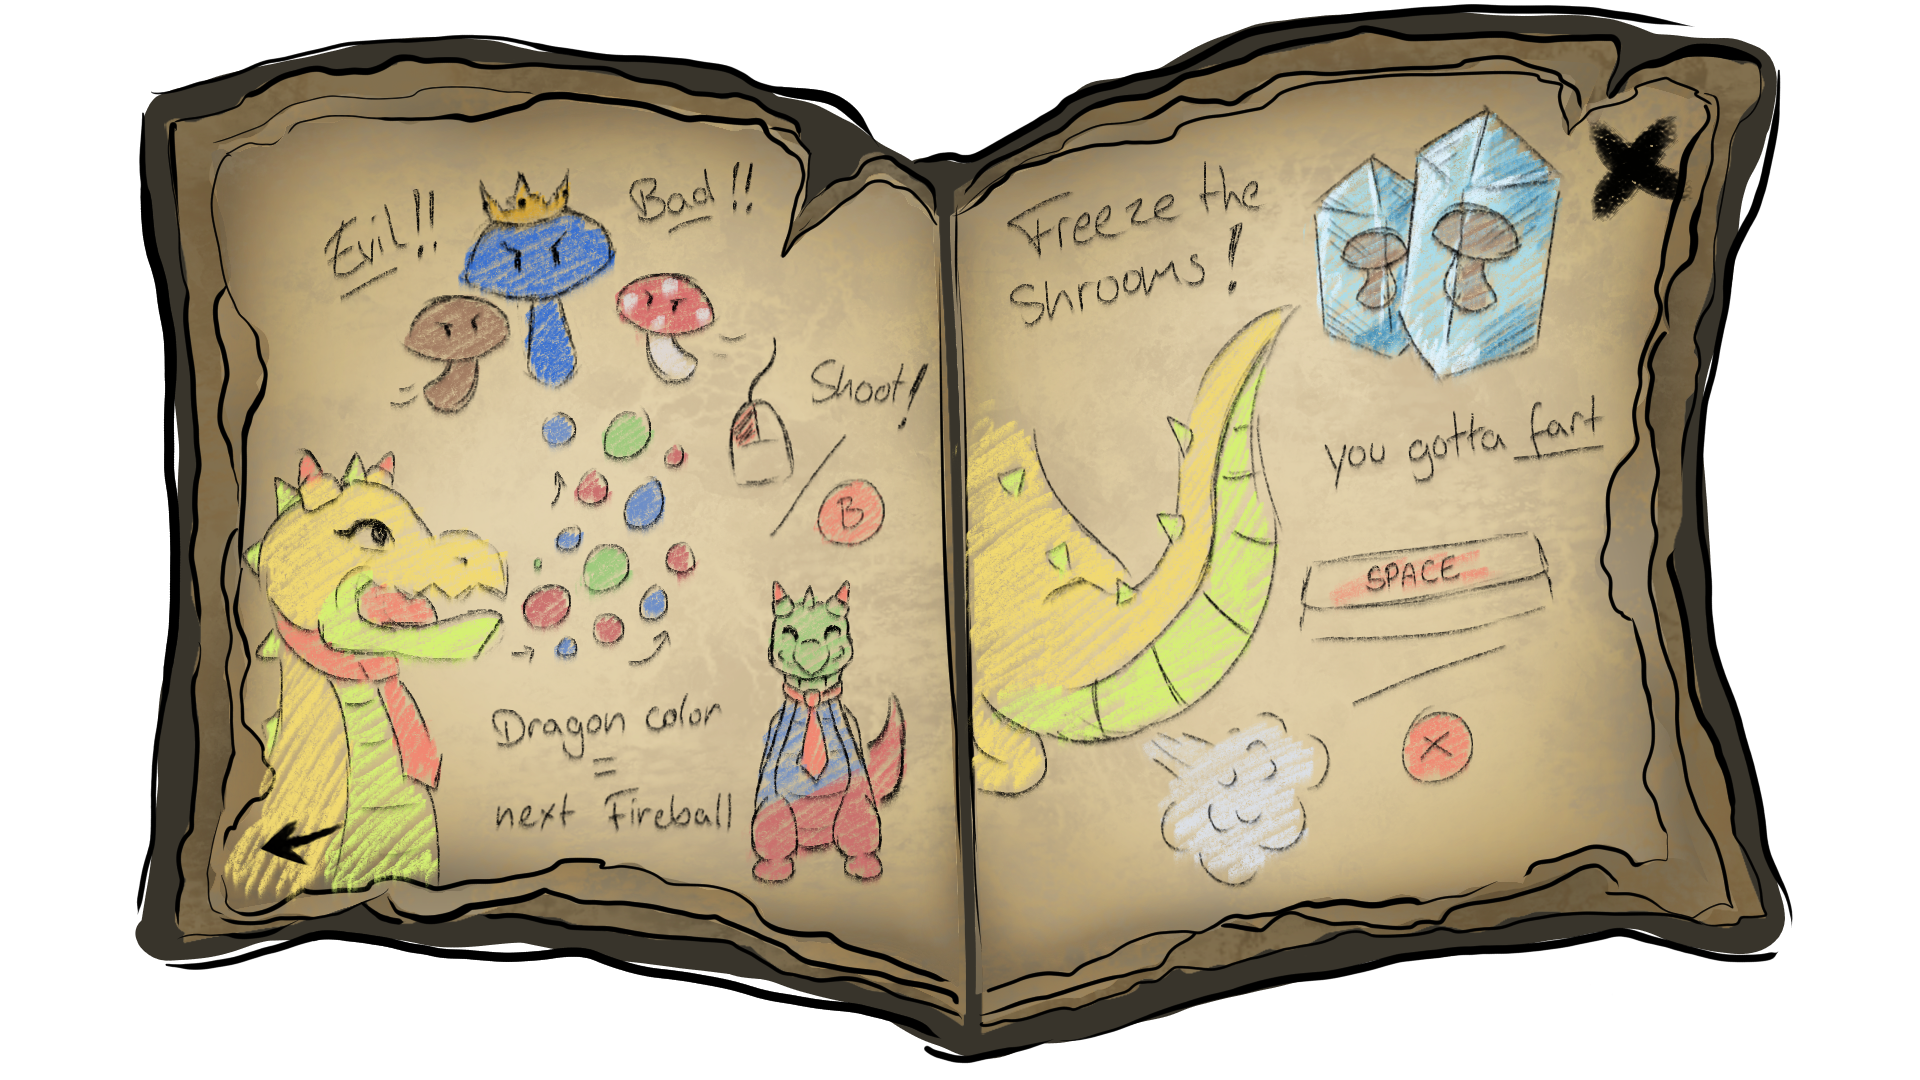 Evil!!
Bad!!
Shoot!
B
Dragon color
=
next Fireball
Freeze the
Shrooms!
you gotta fart
SPACE
X